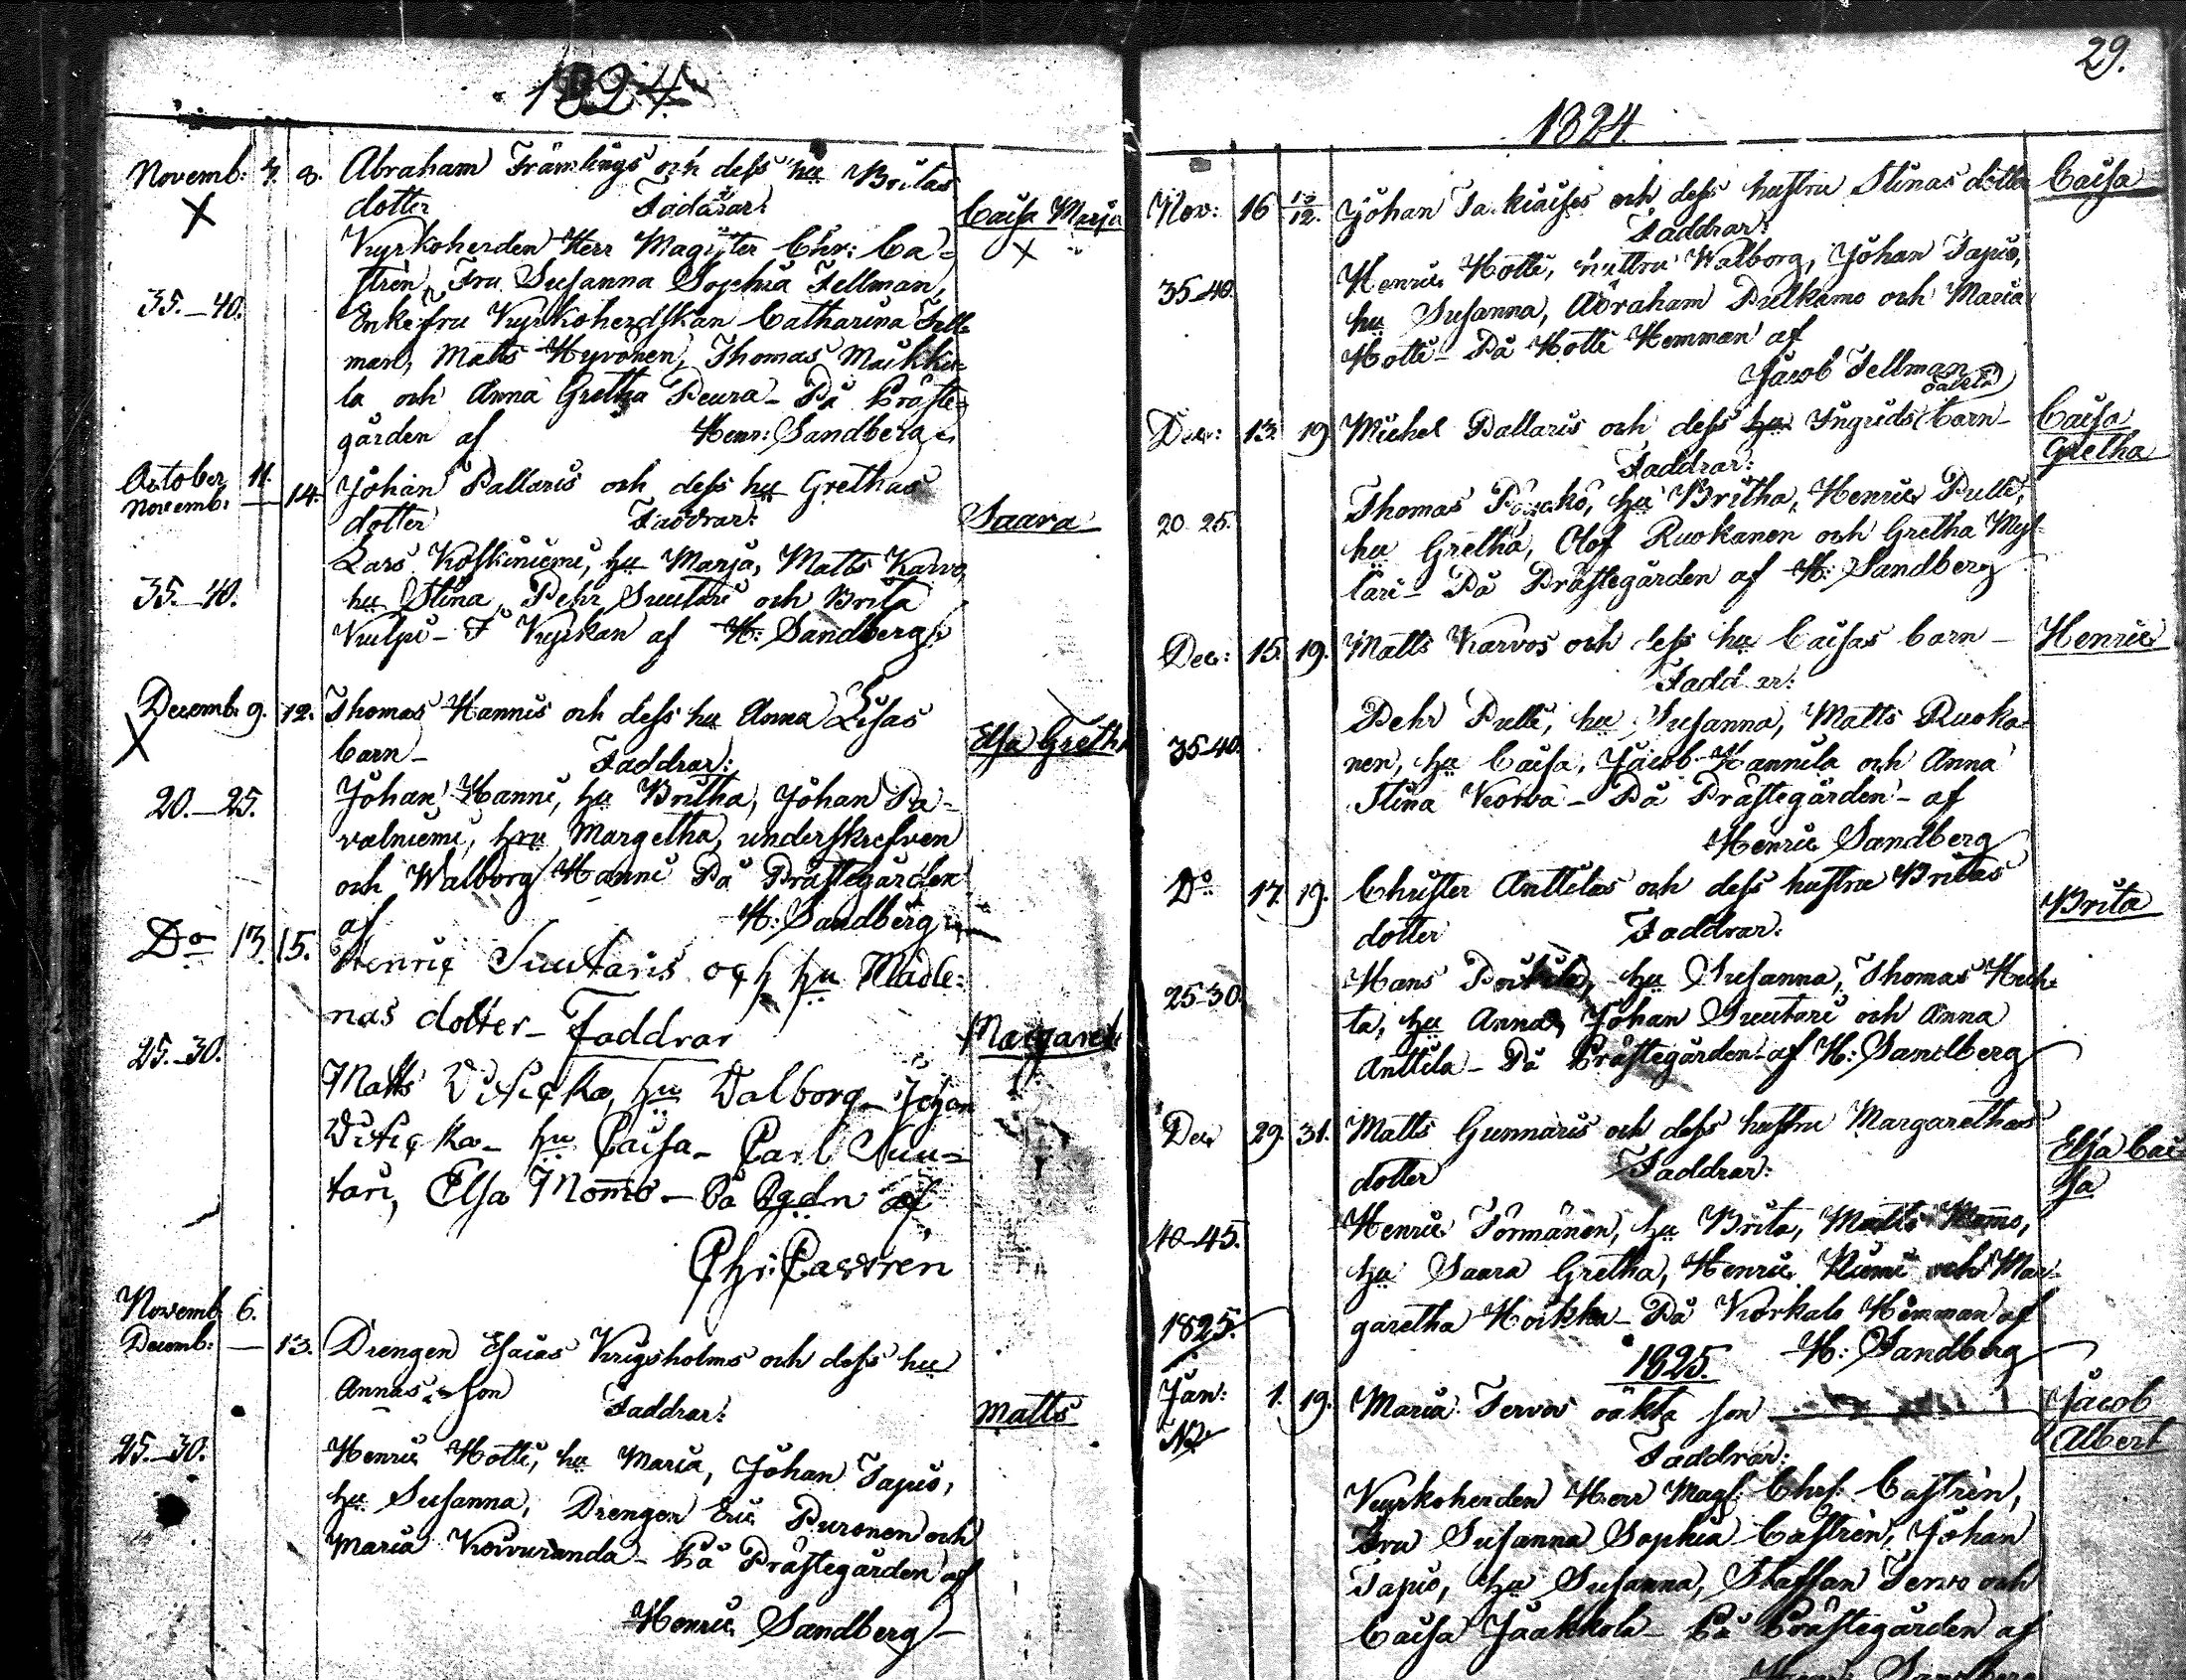 1824.
Novemb. 7. 8. Abraham Främlings och dess hu Britas
dotter Faddrar: Caisa Maria
Kyrkoherden Herr Magister Chr: Ca-
strén, Fru Susanna Sophia Fellman,
35.-40. Enkefru Kyrkoherdskan Catharina Fell-
man, Matts Hyvönen, Thomas Mäkku-
la och Anna Gretha Peura - På Präste-
gården af Henr: Sandberg
October 11.
Novemb: — 14. Johan Pallaris och dess hu Grethas
dotter Faddrar: Saara
Lars Koskiniemi, hu Marja, Matts Karvo,
35.-40. hu Stina, Pehr Suutari och Brita
Kulpi - I Kyrkan af H: Sandberg
Decemb. 9. 12. Thomas Hannis och dess hu Anna Lisas
barn - Faddrar: Elsa Gretha
20.-25. Johan Hanni, hu Britha, Johan Pa-
valniemi, hru Margetha, underskrefven
och Walborg Hanni På Prästegården
af H: Sandberg
Do 13. 15. Henric Suutaris och hu Madle-
nas dotter - Faddrar Margareta
25.-30. Matts hu Valborg - Johan
hu Caisa - Carl Suu-
tari, Elsa Mom̄o - På Pgdn af
Chr: Castrén
Novemb. 6.
Decemb: — 13. Drengen Esaias Krigsholms och dess hu
Annas son Faddrar: Matts
25.-30. Henric Hotti, hu Maria, Johan Tapio,
hu Susanna, Drengen Eric Puronen och
Maria Koivuranda - På Prästegården af
Henric Sandberg
29.
1824.
Nov: 16 12. Johan och dess hustru Stinas dotter Caisa
Faddrar:
35-40. Henric Hotti, hustru Walborg, Johan Tapio,
hu Susanna, Abraham Pulkamo och Maria
Hotti - På Hotti Hemman af
Jacob Fellman
Dec: 13. 19 Michel Pallaris och dess hu Ingrids barn - Caisa
Faddrar: Gretha
20 25. Thomas hu Britha, Henric Pulli,
hu Gretha, Olof Ruokanen och Gretha Myl-
läri - På Prästegården af H: Sandberg
Dec: 15. 19. Matts Karvos och dess hu Caisas barn - Henric
Faddrar:
Pehr Pulli, hu Susanna, Matts Ruoka-
35-40. nen, hu Caisa, Jacob Hannila och Anna
Stina Korva - På Prästegården - af
Henric Sandberg
Do 17. 19. Christer Anttilas och dess hustru Britas
dotter Faddrar: Brita
25-30. Hans hu Susanna, Thomas Huh-
ta, hu Anna, Johan Suutari och Anna
Anttila - På Prästegården - af H: Sandberg
Dec 29. 31. Matts Gunnaris och dess hustru Margarethas
dotter Faddrar: Elsa Cai-
sa
40-45. Henric Törmänen, hu Brita, Matts Mom̄o,
hu Saara Gretha, Henric Niemi och Mar-
garetha Hoikka - På Korkalo Hemman af
1825. H: Sandberg
1825.
Jan: 1. 19. Maria Tervos oäkta son Jacob
Faddrar: Albert
Kyrkoherden Herr Mag: Chr: Castrén,
Fru Susanna Sophia Castrén, Johan
Tapio, hu Susanna, Staffan Tervo och
Caisa Jaakkola - På Prästegården af
Sandberg